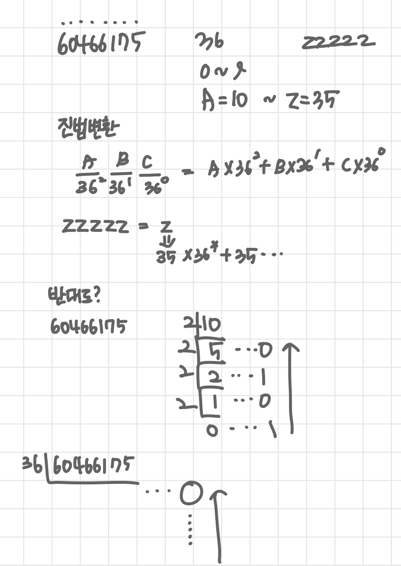 60466175 36 ZZZZZ
0~9
A=10 ~ Z=35
진법변환
A/36² B/36¹ C/36⁰ = A×36²+B×36¹+C×36⁰
ZZZZZ = Z
⇓
35×36⁴+35...
반대로?
60466175
2|10
2|5 ...0
2|2 ...1
2|1 ...0
0 ...1
36|60466175
...0